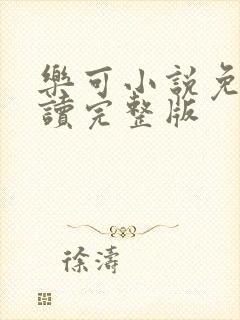 樂可小說免
讀完整版
徐濤